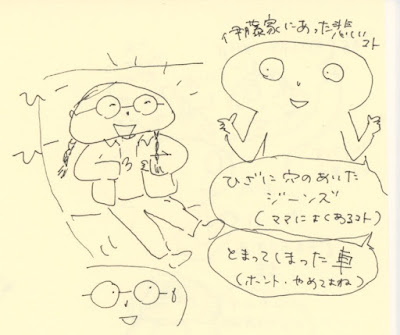 伊藤家にあった悲しい
コト
ひざに穴のあいた
ジーンズ
(ママによくあるコト)
とまってしまった車
(ホント・やめてよね)